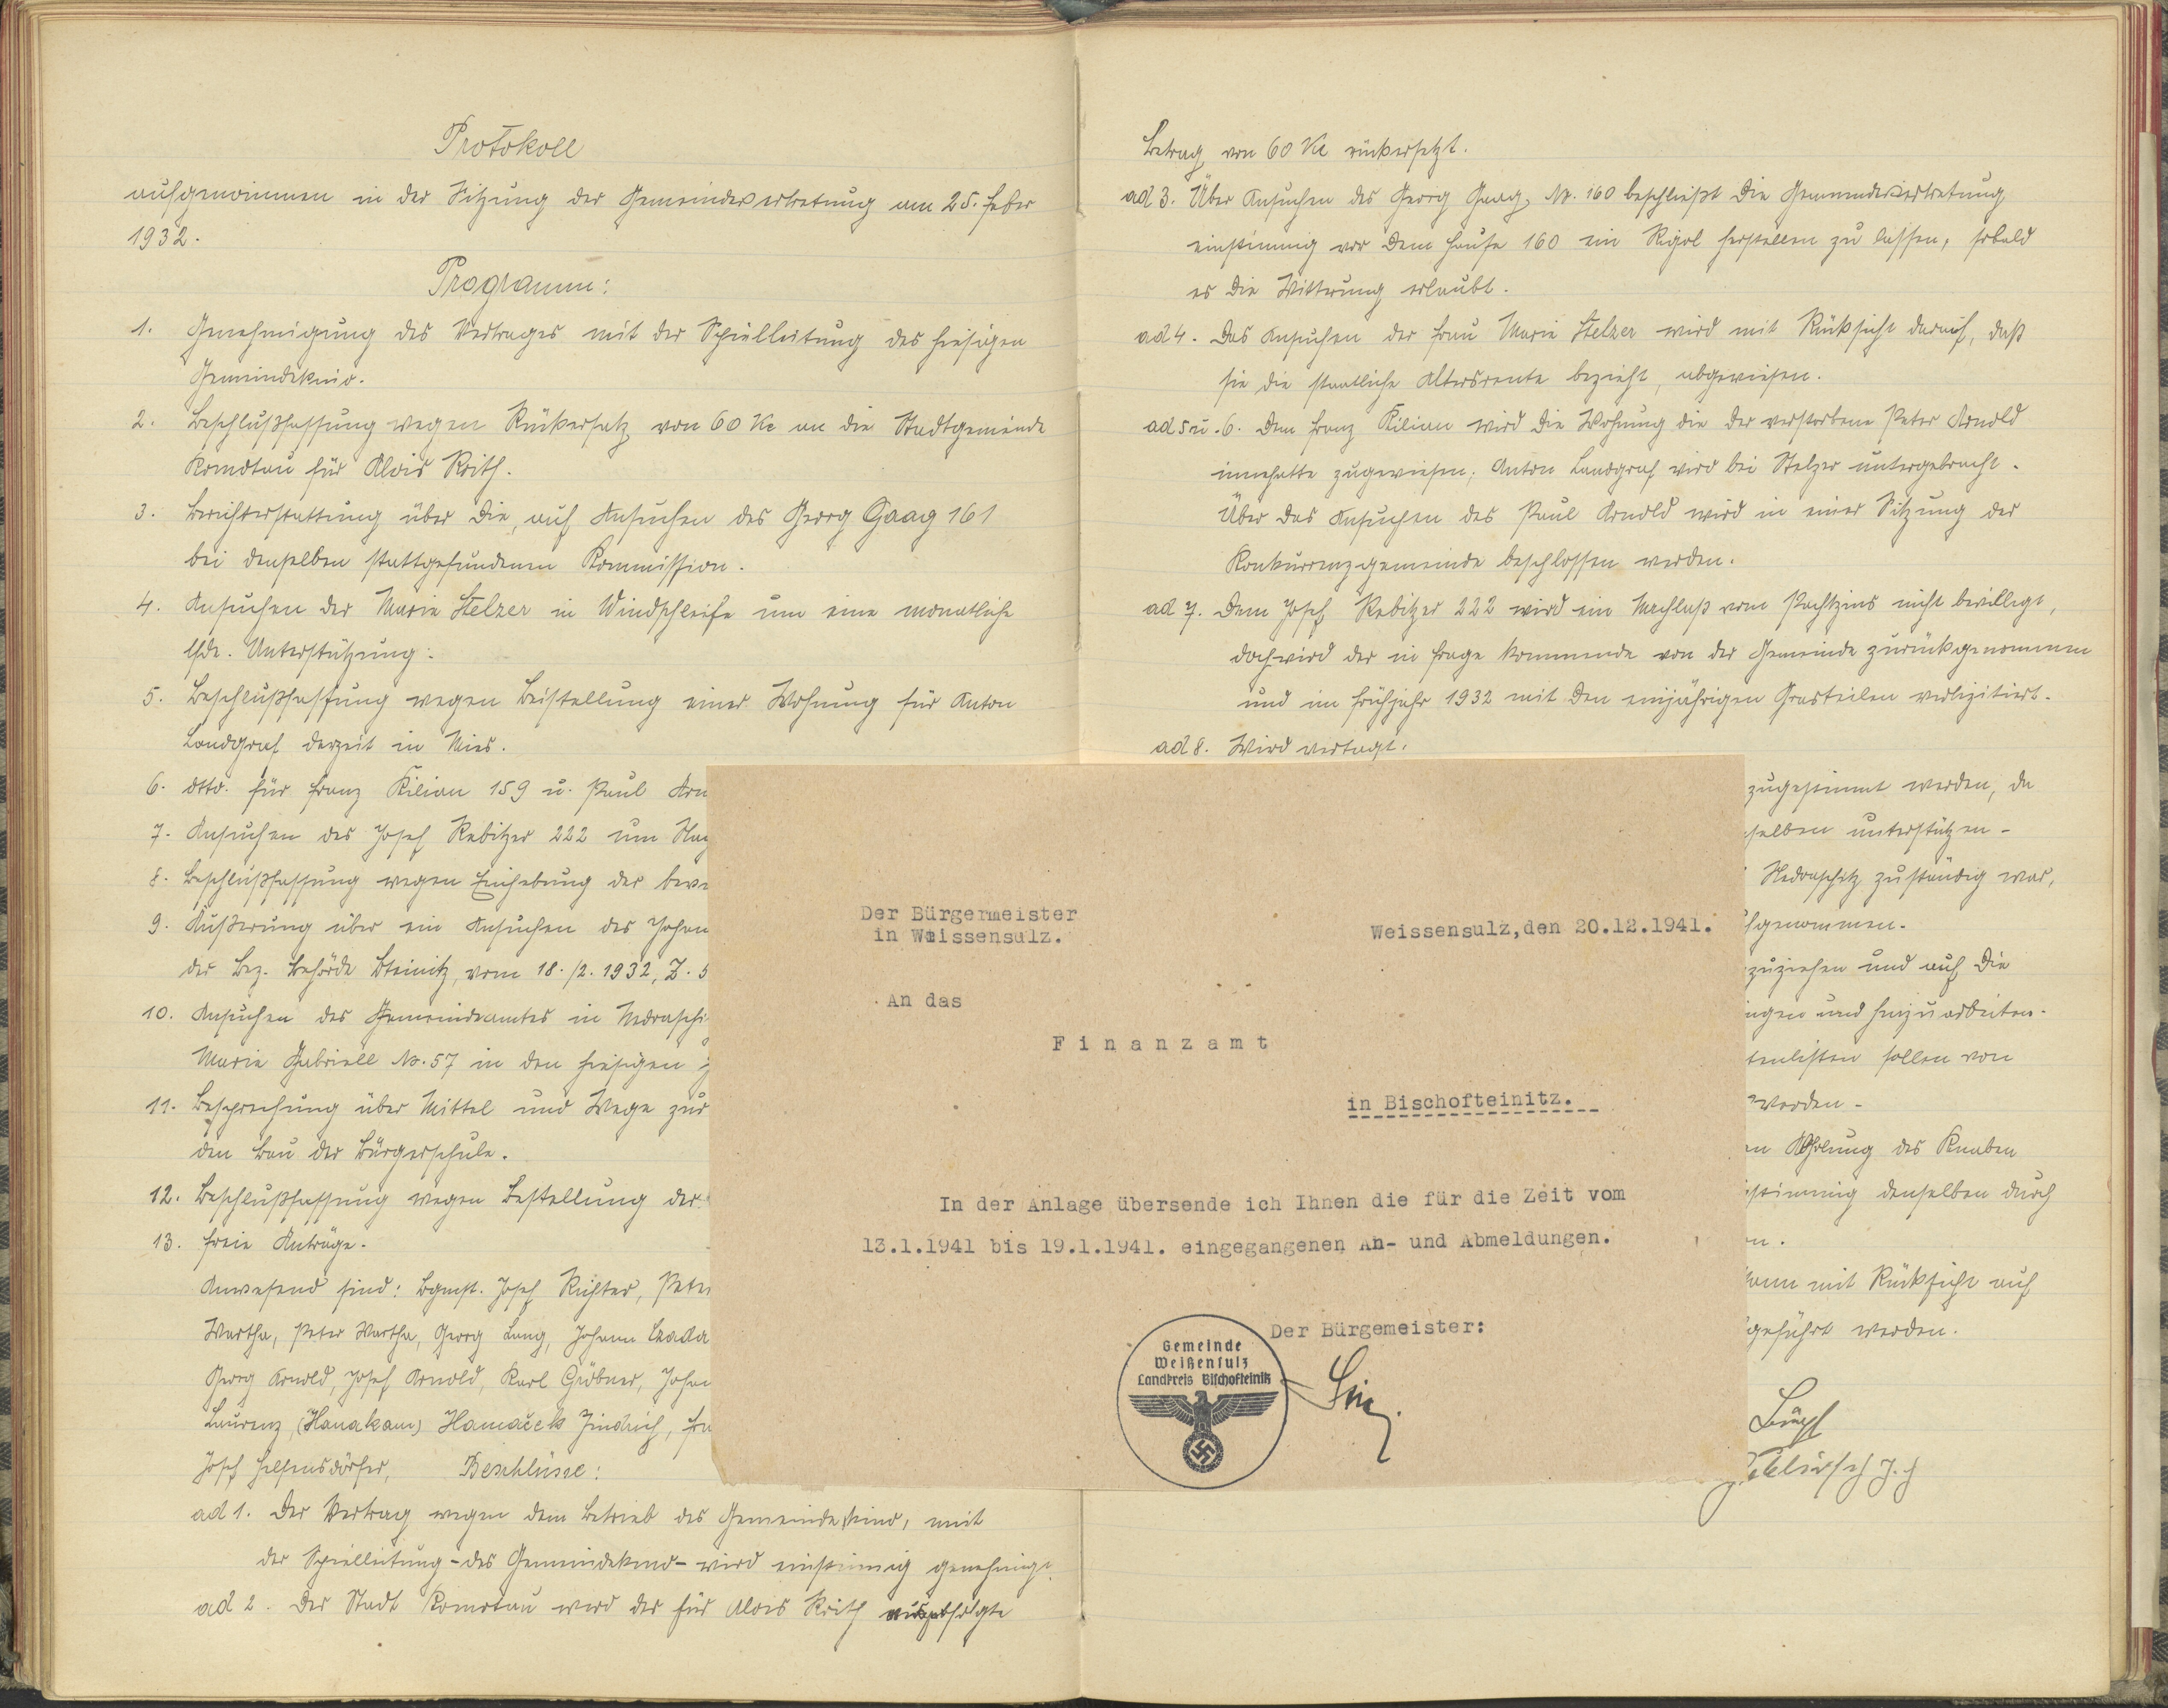 Protokoll
aufgenommen in der Sitzung der Gemeindevertretung am 25. Feber
1932.
Programm:
1. Genehmigung des Vertrages mit der Spielleitung des hiesigen
Gemeindekino.
2. Beschlußfassung wegen Rückersatz von 60 Kc an die Stadtgemeinde
Komotau für Alois Roith.
3. Berichterstattung über die, auf Ansuchen des Georg Gaag 161
bei denselben stattgefundenen Kommission.
4. Ansuchen der Marie Stelzer in Windschleife um eine monatliche
lfde. Unterstützung.
5. Beschlußfassung wegen Beistellung einer Wohnung für Anton
Landgraf derzeit in Mies.
6. dtto. für Franz Kilian 159 u. Paul Arn
7. Ansuchen des Josef Rebitzer 222 um
8. Beschlußfassung wegen Einhebung der
9. Äußerung über ein Ansuchen des Johan
der Bez. Behörde Bteinitz, vom 18./2. 1932, Z. 5
10. Ansuchen des Gemeindeamtes in Nedraschi
Marie Gabriell No. 57 in den hiesigen
11. Besprechung über Mittel und Wege zur
den Bau der Bürgerschule.
12. Beschlußfassung wegen Bestellung der
13. Freie Anträge.
Anwesend sind: Bgmst. Josef Richter, Peter
Wartha, Peter Wartha, Georg Lang, Johann
Georg Arnold, Josef Arnold, Karl Gröbner, Johan
Laurenz, (Hanakam) Hamáček Jindrich,
Josef Helfensdörfer, Beschlüsse:
ad 1. Der Vertrag wegen dem Betrieb des Gemeindekino, mit
der Spielleitung - des Gemeindekino - wird einstimmig genehmigt.
ad 2. Der Stadt Komotau wird der für Alois Roith
Betrag von 60 Kc rückersetzt.
ad 3. Über Ansuchen des Georg Gaag, No. 160 beschließt die Gemeindevertretung
einstimmig vor dem Hause 160 ein Rigol herstellen zu lassen, sobald
es die Witterung erlaubt.
ad 4. Das Ansuchen der Frau Marie Stelzer wird mit Rücksicht darauf, daß
sie die staatliche Altersrente bezieht, abgewiesen.
ad 5 u. 6. Dem Franz Kilian wird die Wohnung die der verstorbene Peter Arnold
innehatte zugewiesen; Anton Landgraf wird bei Stelzer untergebracht.
Über das Ansuchen des Paul Arnold wird in einer Sitzung der
Konkurrenzgemeinde beschlossen werden.
ad 7. Dem Josef Rebitzer 222 wird ein Nachlaß vom Pachtzins nicht bewilligt,
doch wird der in Frage kommende von der Gemeinde zurückgenommen
und im Frühjahr 1932 mit den einjährigen Grasteilen verlizitiert.
ad 8. Wird vertagt.
zugestimmt werden, da
selben unterstützen -
Nedraschitz zuständig war,
fgenommen.
zuziehen und auf die
ngen und hinzuarbeiten.
tenlisten sollen von
werden -
en Abholung des Knaben
stimmig denselben durch
n.
kann mit Rücksicht auf
geführt werden.
Der Bürgermeister
in Weissensulz.
Weissensulz,den 20.12.1941.
An das
Finanzamt
in Bischofteinitz.
In der Anlage übersende ich Ihnen die für die Zeit vom
13.1.1941 bis 19.1.1941. eingegangenen An- und Abmeldungen.
Der Bürgemeister:
Gemeinde
Weißensulz
Landkreis Bischofteinitz